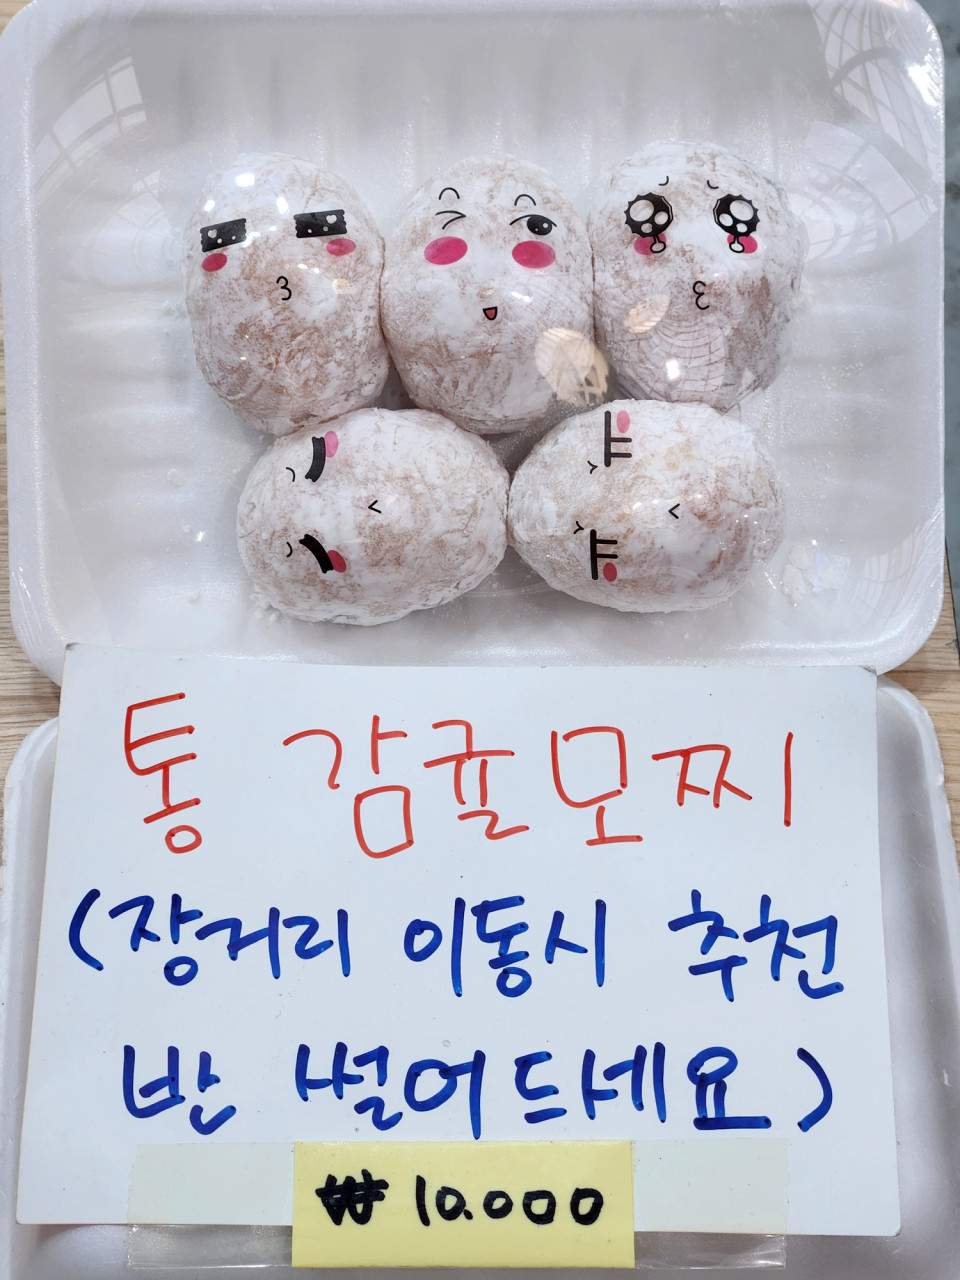 통 감귤모찌
(장거리 이동시 추천
반 썰어드세요)
₩10.000